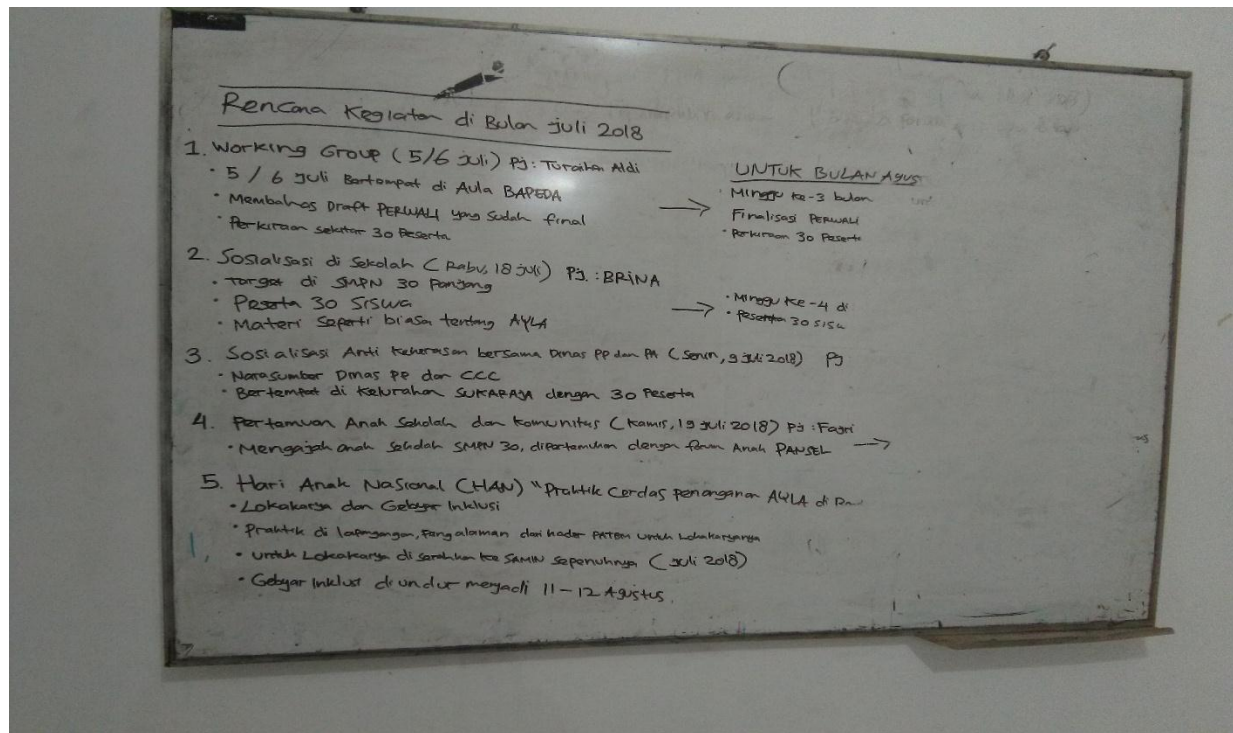 Rencana Kegiatan di Bulan Juli 2018
1. Working Group (5/6 Juli) Pj: Turaihan Aldi
• 5 / 6 Juli Bertempat di Aula BAPEDA
• Membahas Draft PERWALI yang sudah final
• Perkiraan sekitar 30 Peserta
UNTUK BULAN Agus
• Minggu ke-3 bulan
Finalisasi PERWALI
• Perkiraan 30 Peserta
2. Sosialisasi di Sekolah (Rabu, 18 Juli) Pj. : BRINA
• Target di SMPN 30 Panjang
• Peserta 30 Siswa
• Materi seperti biasa tentang AYLA
• Minggu ke-4 di
• Peserta 30 sisw
3. Sosialisasi Anti Kekerasan bersama Dinas PP dan PA (Senin, 9 Juli 2018) Pj
• Narasumber Dinas PP dan CCC
• Bertempat di Kelurahan SUKARAJA dengan 30 Peserta
4. Pertemuan Anak Sekolah dan Komunitas (Kamis, 19 Juli 2018) Pj : Fasri
• Mengajak anak sekolah SMPN 30, dipertemukan dengan forum Anak PANSEL
5. Hari Anak Nasional (HAN) "Praktik Cerdas penanganan AYLA di
• Lokakarya dan Gebyar Inklusi
• Praktik di lapangan, Pengalaman dari kader PATBM untuk Lokakaryanya
• untuk Lokakarya di serahkan ke SAMIN sepenuhnya (Juli 2018)
• Gebyar Inklusi di undur menjadi 11-12 Agustus